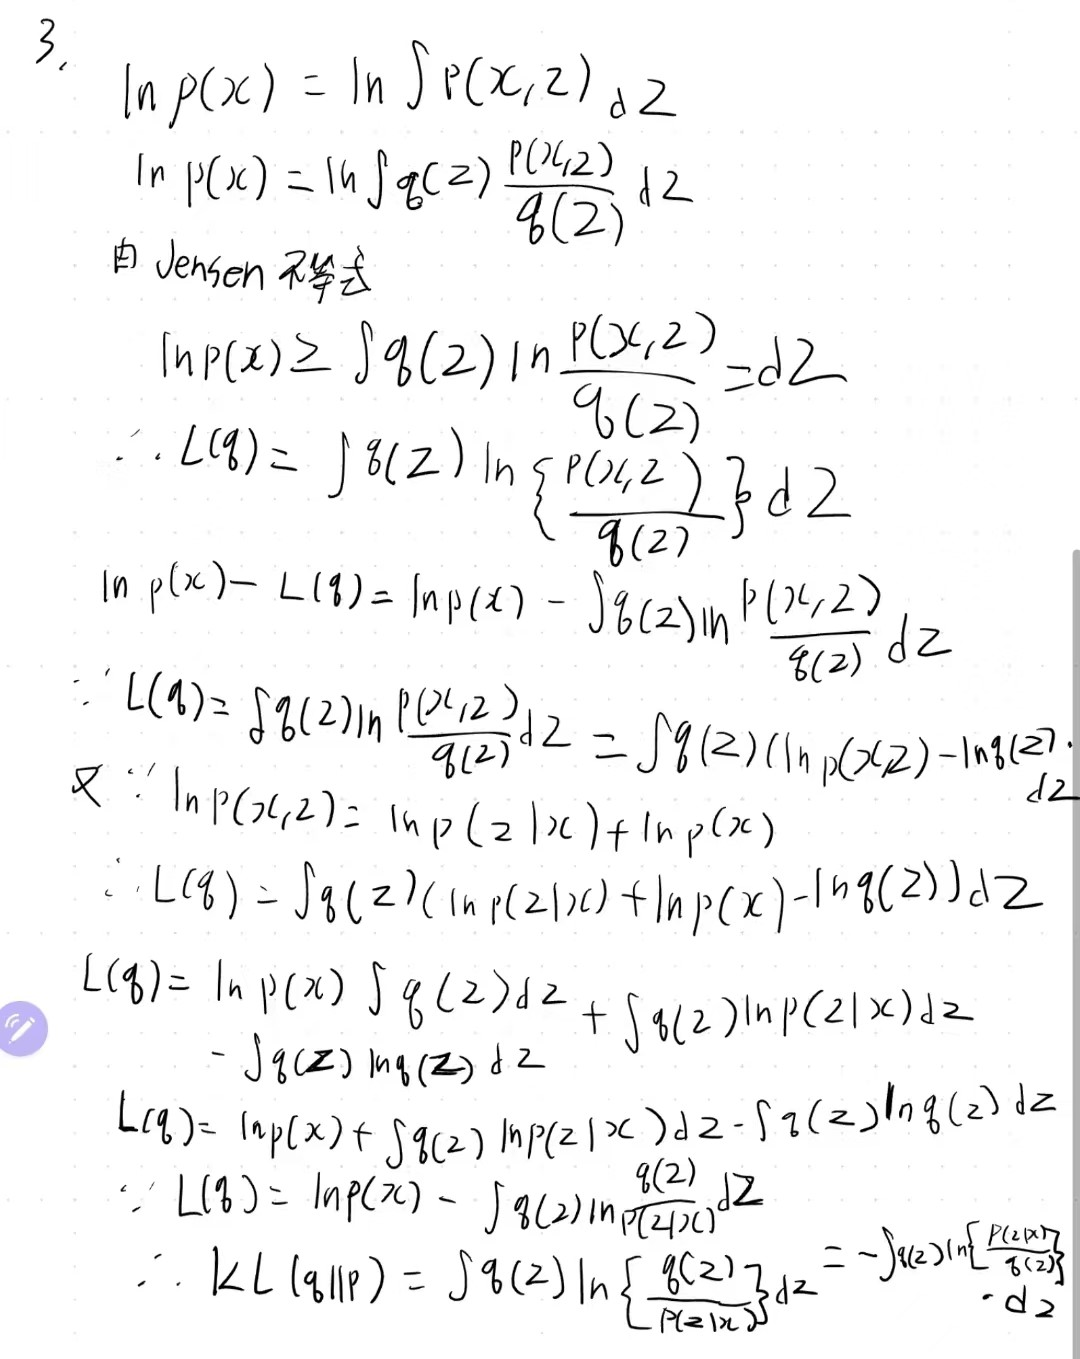 3.
ln p(x) = ln ∫ p(x,z) dz
ln p(x) = ln ∫ q(z) p(x,z)/q(z) dz
由 Jensen 不等式
ln p(x) ≥ ∫ q(z) ln p(x,z)/q(z) = dz
∴ L(q) = ∫ q(z) ln { p(x,z)/q(z) } dz
ln p(x) - L(q) = ln p(x) - ∫ q(z) ln p(x,z)/q(z) dz
∵ L(q) = ∫ q(z) ln p(x,z)/q(z) dz = ∫ q(z) (ln p(x,z) - ln q(z)) · dz
又 ∵ ln p(x,z) = ln p(z|x) + ln p(x)
∴ L(q) = ∫ q(z) (ln p(z|x) + ln p(x) - ln q(z)) dz
L(q) = ln p(x) ∫ q(z) dz + ∫ q(z) ln p(z|x) dz
- ∫ q(z) ln q(z) dz
L(q) = ln p(x) + ∫ q(z) ln p(z|x) dz - ∫ q(z) ln q(z) dz
∵ L(q) = ln p(x) - ∫ q(z) ln q(z)/p(z|x) dz
∴ KL(q||p) = ∫ q(z) ln { q(z)/p(z|x) } dz = - ∫ q(z) ln { p(z|x)/q(z) } · dz